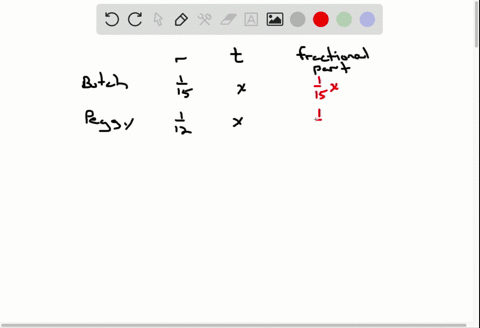 r t fractional part
Butch 1/15 x 1/15 x
Peggy 1/12 x 1